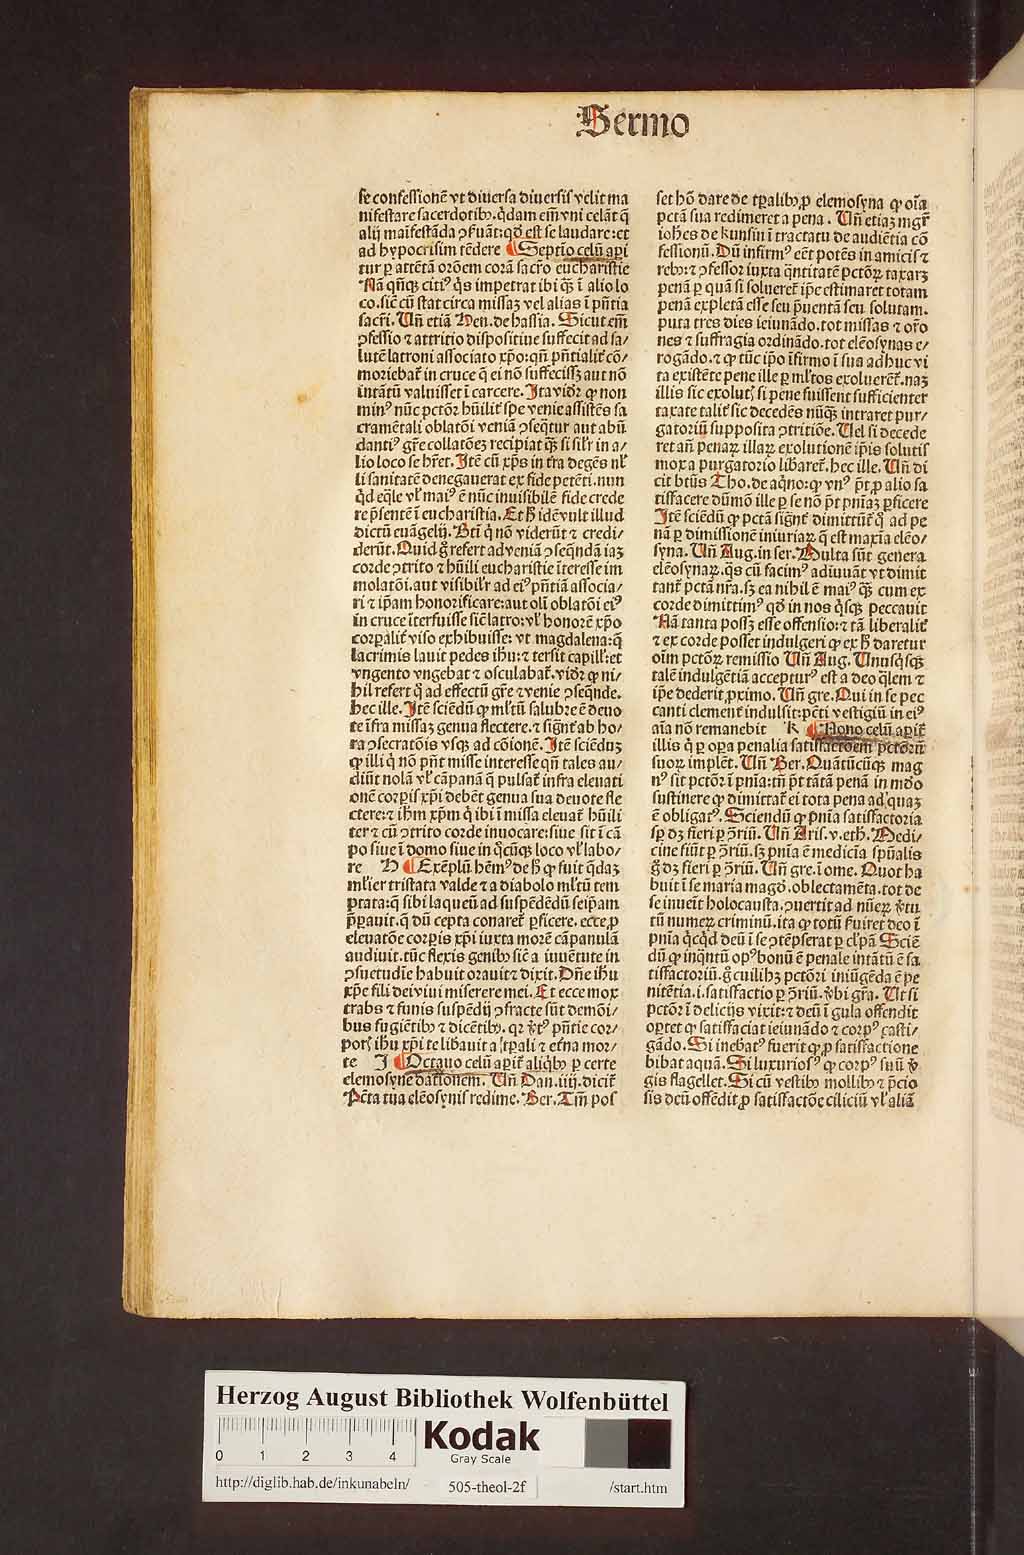 Sermo
se confessionē vt diuersa diuersis velit ma
nifestare sacerdotibꝫ. q̇dam em̄ vni celāt q̄
alij maīfestāda ꝯfuāt: qd̄ est se laudare: et
ad hypocrisim tēdere ¶ Septīo celū api
tur ꝑ attētā orōem corā sacr̄o eucharistie
Nā qn̄qꝫ citiꝰ q̇s impetrat ibi qꝫ̄ ī alio lo
co. sic̄ cū stat circa missaꝫ vel alias ī pn̄tia
sacr̄i. Un̄ etiā Hen. de hassia. Sicut em̄
ꝯfessio ⁊ attritio dispositiue suffecit ad sa/
lutē latroni associato xp̄o: qn̄ pn̄tialit̄ cō/
moriebat̄ in cruce q̄ ei nō suffecissꝫ aut nō
intātū valuisset ī carcere. Ita vid̄r ꝙ non
minꝰ nūc pctōr hūilit̄ spe venie assistēs sa
cramētali oblatōi veniā ꝯseq̄tur aut abū
dantiꝰ gr̄e collatōeꝫ recipiat qꝫ̄ si sil̄r in a/
lio loco se hr̄et. Itē cū xp̄s in tr̄a degēs nł
li sanitatē denegauerat ex fide petēti. nun
q̇d eq̄le vł maiꝰ ē nūc inuisibilē fide crede
re p̄sentē ī eucharistia. Et h̄ idē vult illud
dictū euāgelij. Bt̄i q̇ nō viderūt ⁊ credi/
derūt. Quid g̊ refert ad veniā ꝯseq̄ndā iaꝫ
corde ꝯtrito ⁊ hūili eucharistie īteresse im
molatōi. aut visibil̄r ad eiꝰ pn̄tiā associa/
ri ⁊ ip̄am honorificare: aut olī oblatōi eiꝰ
in cruce īterfuisse sic̄ latro: vł honorē xp̄o
corꝑalit̄ viso exhibuisse: vt magdalena: q̄
lacrimis lauit pedes ih̄u: ⁊ tersit capill': et
vngento vngebat ⁊ osculabat̄. vid̄r ꝙ ni/
hil refert q̇ ad effectū gr̄e ⁊ venie ꝯseq̄nde.
hec ille. Itē sciēdū ꝙ ml̄tū salubre ē deuo
te īfra missaꝫ genua flectere. ⁊ signāt̄ ab ho/
ra ꝯsecratōis vsqꝫ ad cōionē. Itē sciēduꝫ
ꝙ illi q̇ nō pn̄t misse interesse qn̄ tales au/
diūt nolā vł cāpanā q̄ pulsat̄ infra eleuati
onē corꝑis xp̄i debēt genua sua deuote fle
ctere: ⁊ ih̄m xp̄m q̇ ibi ī missa eleuat̄ hūili
ter ⁊ cū ꝯtrito corde inuocare: siue sit ī cā
po siue ī domo siue in q̊cūqꝫ loco vł labo/
re H ¶ Exēplū hēmꝰ de h̄ ꝙ fuit q̄daꝫ
ml̄ier tristata valde ⁊ a diabolo ml̄tū tem
ptata: q̄ sibi laqueū ad suspēdēdū seip̄am
p̄ꝑauit. q̄ dū cepta conaret̄ ꝑficere. ecce ꝓ
eleuatōe corꝑis xp̄i iuxta morē cāpanulā
audiuit. tūc flexis genibꝫ sic̄ a iuuētute in
ꝯsuetudīe habuit orauit ⁊ dixit. Dn̄e ih̄u
xp̄e fili dei viui miserere mei. Et ecce mox
trabs ⁊ funis suspēdij ꝯfracte sūt demōi/
bus fugiētibꝫ ⁊ dicētibꝫ. qꝛ v̄tꝰ pn̄tie cor/
poꝝ ih̄u xp̄i te libauit a tꝑali ⁊ et̄na mor/
te I ¶ Octauo celū aꝑit̄ aliqbꝫ ꝑ certe
elemosyne dationem. Un̄ Dan. iiij. dicit̄
Pctā tua eleōsynis redime. Ber. Tm̄ pos
set hō dare de tꝑalibꝫ ꝓ elemosyna ꝙ oīa
pctā sua redimeret a pena. Un̄ etiaꝫ mgr̄
ioh̄es de kunsin ī tractatu de audiētia cō
fessionū. Dū infirmꝰ eēt potēs in amicis ⁊
rebꝫ: ⁊ ꝯfessor iuxta q̄ntitatē pctōꝝ taxarꝫ
penā ꝑ quā si solueret ip̄e estimaret totam
penā expletā esse seu p̄uentā seu solutam.
puta tres dies ieiunādo. tot missas ⁊ or̄o
nes ⁊ suffragia ordinādo. tot eleōsynas e/
rogādo. ⁊ ꝙ tūc ip̄o īfirmo ī sua adhuc vi
ta existēte pene ille ꝑ ml̄tos exoluerēt̄. naꝫ
illis sic exolutꝭ si pene fuissent sufficienter
taxate talit̄ sic decedēs nūqꝫ̄ intraret pur/
gatoriū supposita ꝯtritiōe. Uel si decede
ret an̄ penaꝝ illaꝝ exolutionē ip̄is solutis
mox a purgatorio libaret̄. hec ille. Un̄ di
cit btūs Tho. de aq̇no: ꝙ vnꝰ pt̄ ꝓ alio sa
tisfacere dūmō ille ꝑ se nō pt̄ pn̄iaꝫ ꝑficere
Itē sciēdū ꝙ pctā signāt̄ dimittūt̄ q̇ ad pe
nā ꝑ dimissionē iniuriaꝝ q̄ est maxīa eleō/
syna. Un̄ Aug. in ser. Multa sūt genera
eleōsynaꝝ. q̇s cū facimꝰ adiuuāt vt dimit
tant̄ pctā nr̄a. sꝫ ea nihil ē maiꝰ qꝫ̄ cum ex
corde dimittimꝰ qd̄ in nos q̇sqꝫ peccauit
Nā tanta possꝫ esse offensio: ⁊ tā liberalit̄
⁊ ex corde posset indulgeri ꝙ ex h̄ daretur
oīm pctōꝝ remissio Un̄ Aug. Unusq̇sqꝫ
talē indulgētiā accepturꝰ est a deo q̄lem ⁊
ip̄e dederit ꝓximo. Un̄ gre. Qui in se pec
canti clement̄ indulsit: pcti vestigiū in eiꝰ
aīa nō remanebit K ¶ Nono celū aꝑit̄
illis q̇ ꝑ oꝑa penalia satisfactoēm pctōrū
suoꝝ implēt. Un̄ Ber. Quātūcūqꝫ mag
nꝰ sit pctōr ī pn̄ia: nō pt̄ tātā penā in mūdo
sustinere ꝙ dimittat̄ ei tota pena ad quaꝫ
ē obligatꝰ. Sciendū ꝙ pn̄ia satisfactoria
sp̄ dꝫ fieri ꝑ ꝯ̄riū. Un̄ Aris. v. eth. Medi/
cine fiūt ꝑ ꝯ̄riū. sꝫ pn̄ia ē medicīa sp̄ualis
g̊ dꝫ fieri ꝑ ꝯ̄riū. Un̄ gre. ī ome. Quot ha
buit ī se maria magd̄. oblectamēta. tot de
se inueīt holocausta. ꝯuertit ad nūeꝝ v̄tu
tū numeꝝ criminū. ita ꝙ totū ꝭuiret deo ī
pn̄ia q̇cq̇d deū ī se ꝯtēpserat ꝑ cl̄pā Sciē
dū ꝙ inq̄ntū opꝰ bonū ē penale intātū ē sa
tisfactoriū. g̊ cuilibꝫ pctōri iniūgēda ē pe
nitētia. i. satisfactio ꝑ ꝯ̄riū. v̄bi gr̄a. Ut si
pctōr ī delicijs vixit: ⁊ deū ī gula offendit
oꝑtet ꝙ satisfaciat ieiunādo ⁊ corpꝰ casti/
gādo. Si inebatꝰ fuerit ꝙ ꝓ satisfactione
bibat aquā. Si luxuriosꝰ ꝙ corpꝰ suū v̄
gis flagellet. Si cū vestibꝫ mollibꝫ ⁊ p̄cio
sis deū offēdit ꝓ satisfactōe ciliciū vł aliā
Herzog August Bibliothek Wolfenbüttel
0 1 2 3 4
Kodak
Gray Scale
http://diglib.hab.de/inkunabeln/ 505-theol-2f /start.htm